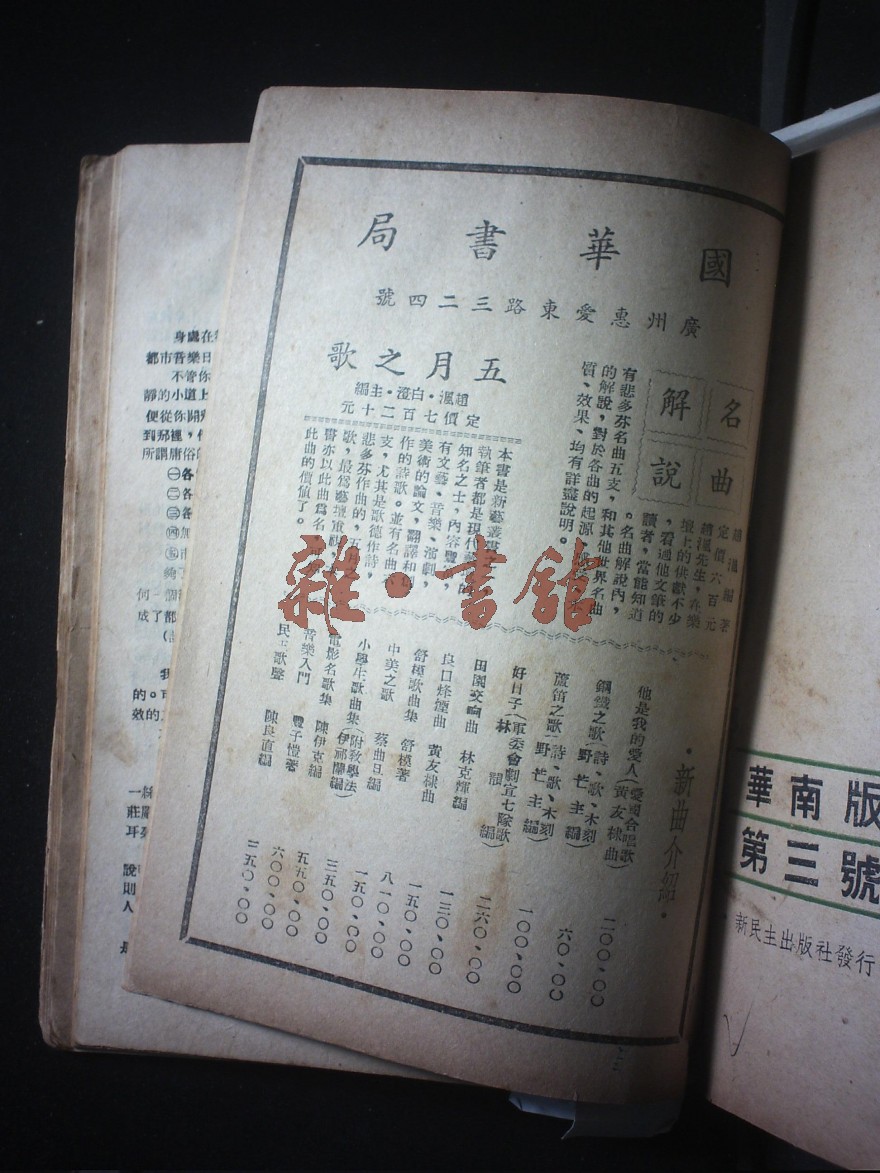 國華書局
廣州惠愛東路三二四號
名曲解說
趙渢編著
定價六百元
趙渢先生，在樂
壇上的供獻不少
，看過他文筆的
讀者，當能知道
。名曲解說內，
有悲多芬名曲五支，和其他世界名曲
的解說，對於各曲的起源
質、效果、均有詳盡說明。
五月之歌
趙渢・白澄・主編
定價七百二十元
本書是新藝叢
執筆者都是現代
知名之士，內容豐
有文藝、音樂、演劇，
美術的論文，翻譯和
作的詩歌。並有名曲
支，尤其是歌德作詩，
悲多芬作曲的，五月
歌，最為藝壇重視
書亦以此曲為名，可
此曲的價值了。
・新曲介紹・
他是我的愛人（愛國合唱歌 黃友棣曲）二〇〇・〇〇
鋼鐵之歌（詩、歌、木刻 野芒主編）六〇・〇〇
蘆笛之歌（詩、歌、木刻 野芒主編）一〇〇・〇〇
好日子（軍委會劇宣七隊歌 林韻編）二六〇・〇〇
田園交响曲 林克輝編 一三〇・〇〇
良口烽煙曲 黃友棣曲 一五〇・〇〇
舒模歌曲集 舒模著 八一〇・〇〇
中美之歌 蔡曲旦編 一五〇・〇〇
小學生歌曲集（附教學法 伊祁蘭編）三五〇・〇〇
電影名歌集 陳伊克編 五五〇・〇〇
音樂入門 豐子愷著 六〇〇・〇〇
民主歌聲 陳良直編 二五〇・〇〇
雜・書館
身處在
都市音樂日
不管你
靜的小道上
便從你
到那裡，
所謂庸俗
㊀各
㊁各
㊂各
㊃加
㊄市
何一
成了
的。
效的
一
莊耳
說則人
華南版
第三號
新民主出版社發行